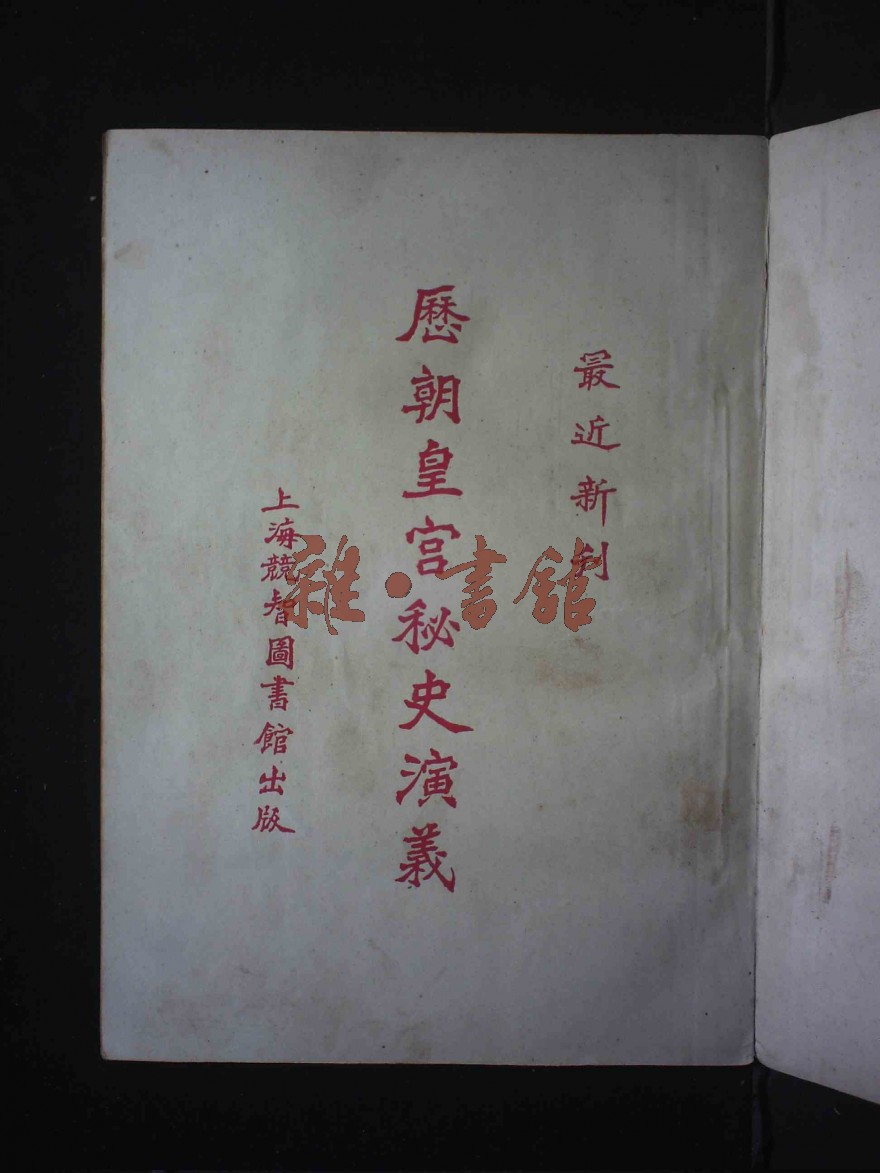 最近新刊
歷朝皇宮秘史演義
上海競智圖書館出版
雜·書館